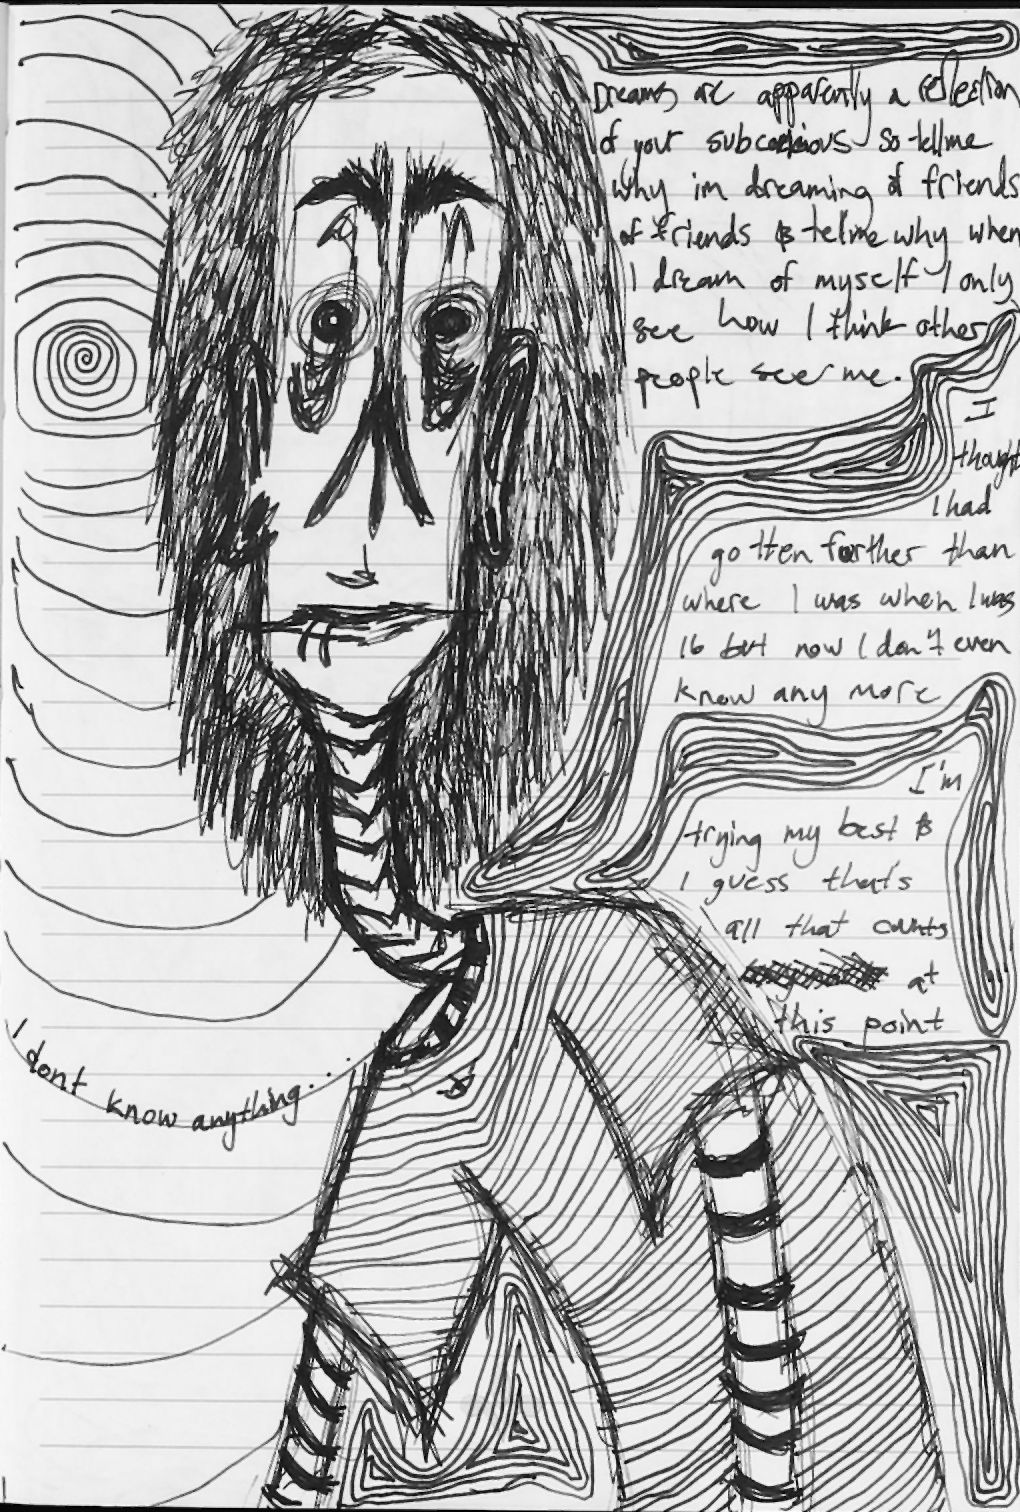 Dreams are apparently a reflection
of your subconcious so tell me
why im dreaming of friends
of friends & tell me why when
I dream of myself I only
see how I think other
people see me.
I
thought
I had
gotten further than
where I was when I was
16 but now I don't even
know any more
I'm
trying my best &
I guess that's
all that counts
at
this point
I dont know anything...